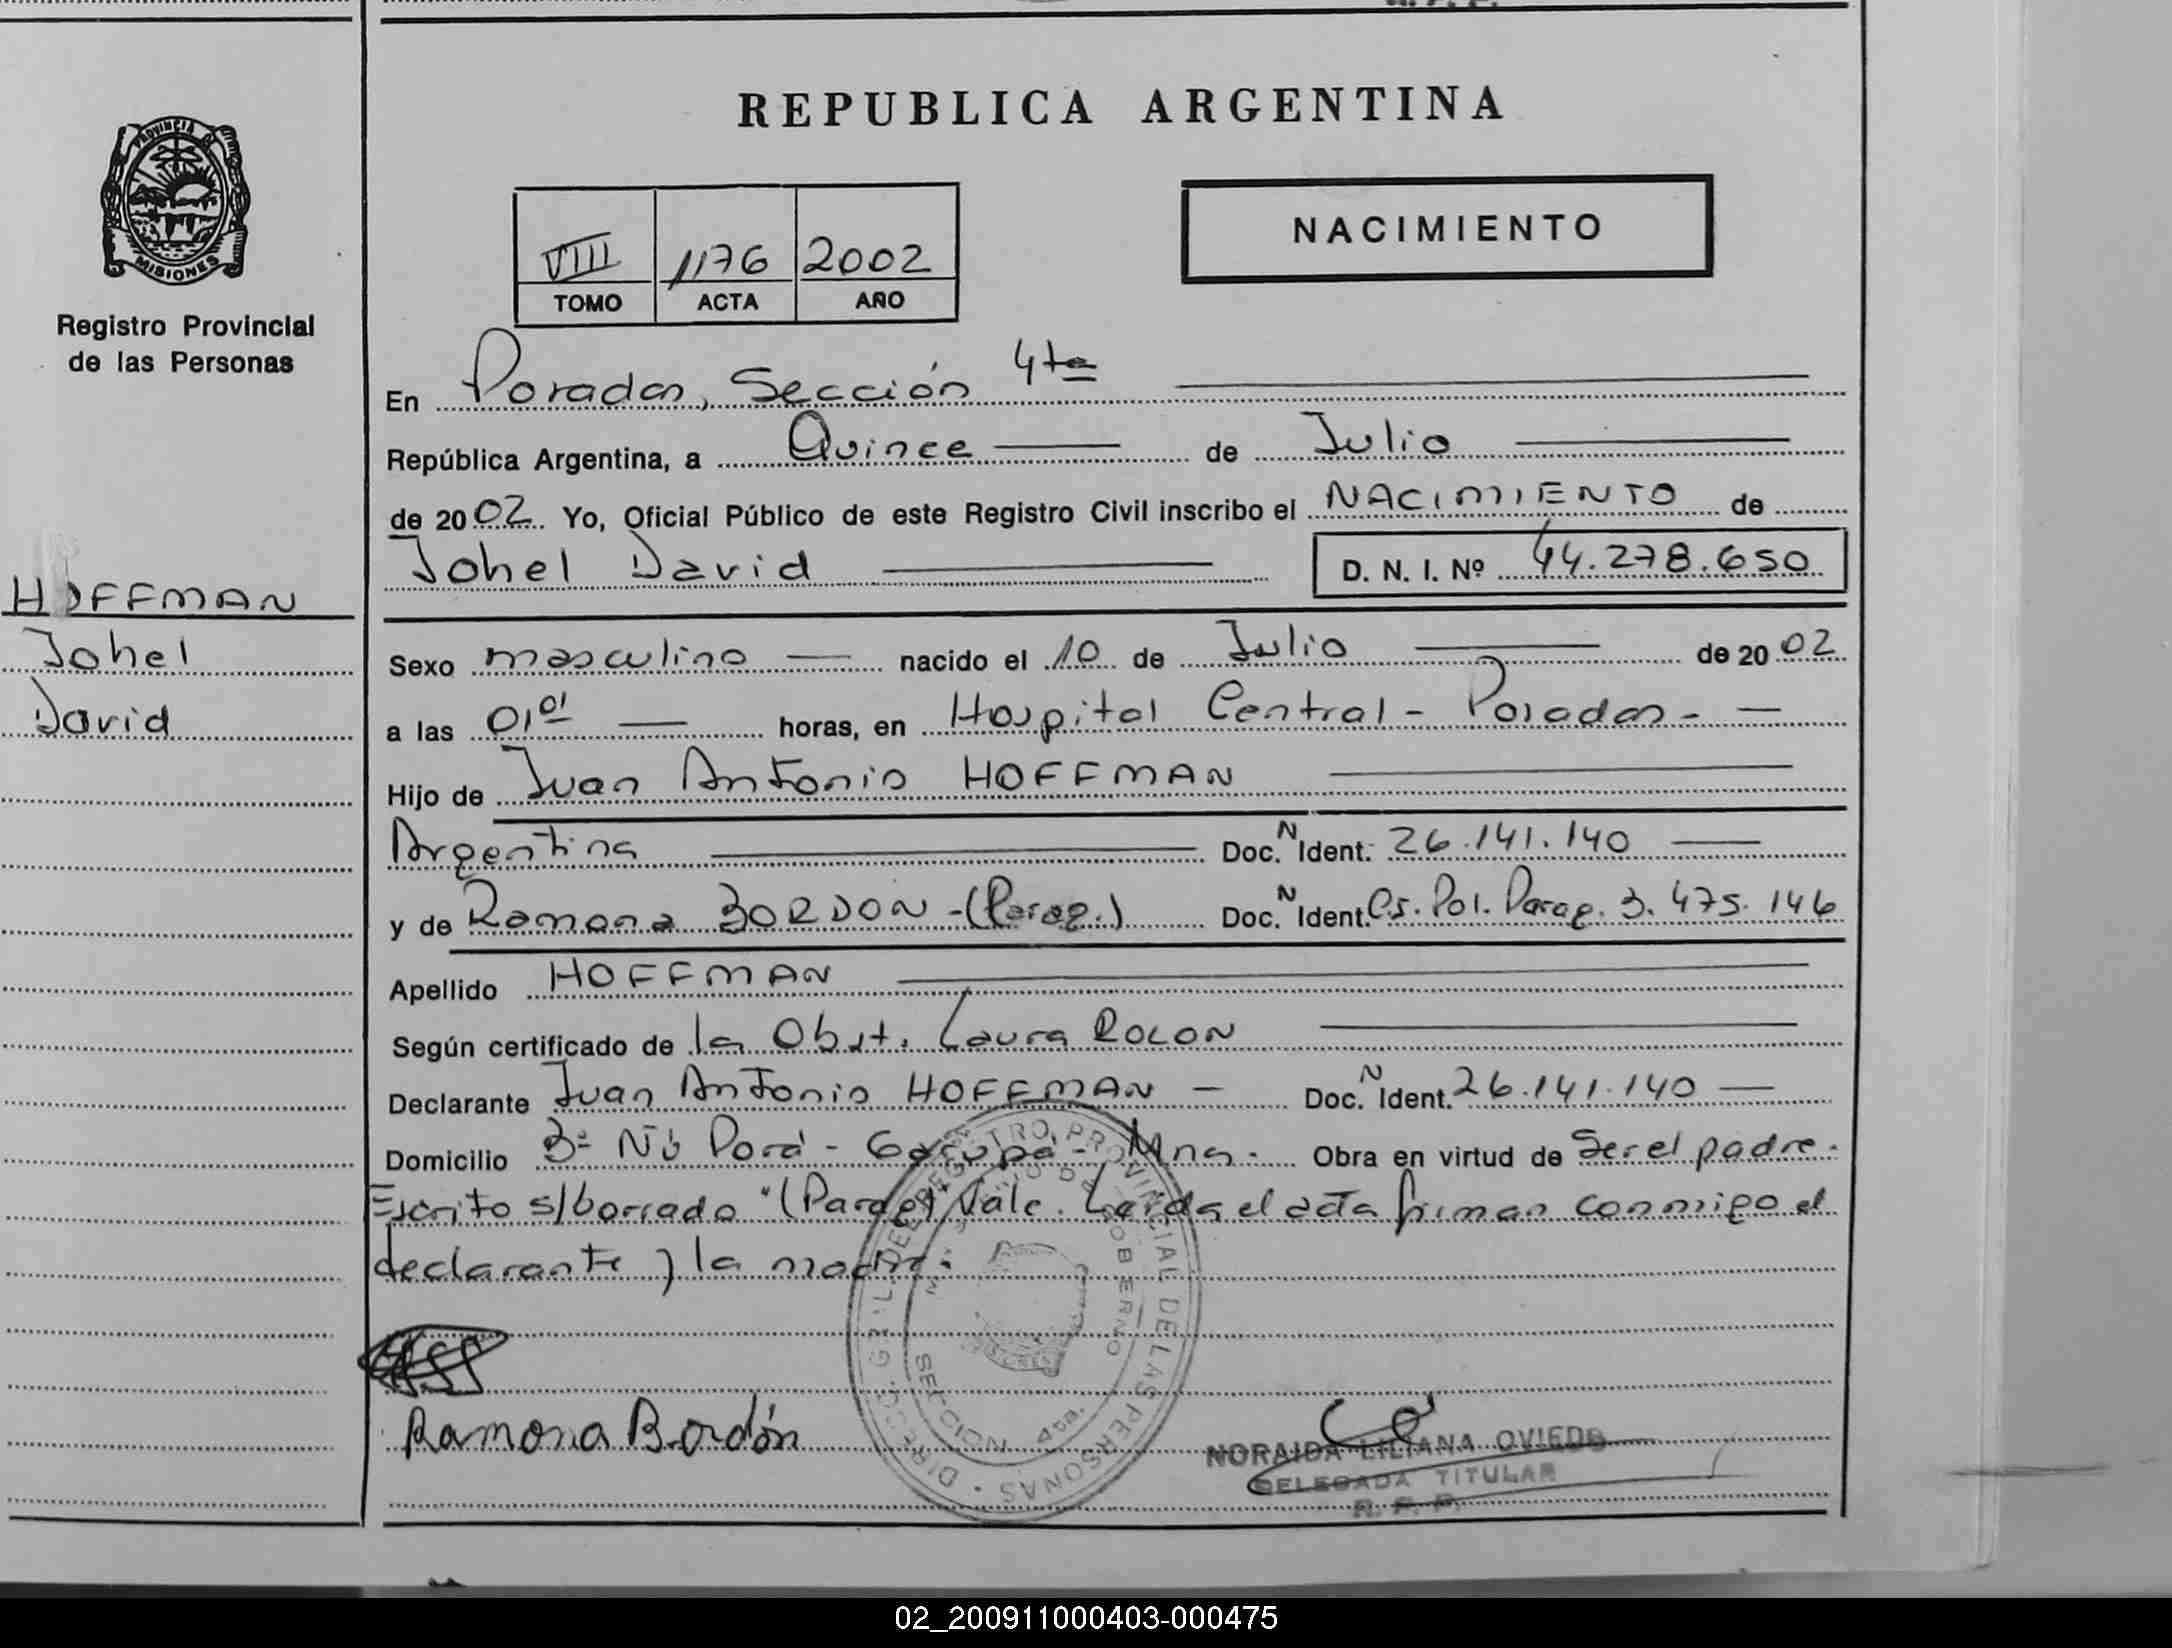 REPUBLICA ARGENTINA
PROVINCIA DE
MISIONES
Registro Provincial
de las Personas
HOFFMAN
Johel
David
VIII 1176 2002
TOMO ACTA AÑO
NACIMIENTO
En Posadas, Sección 4ta
República Argentina, a Quince de Julio
de 2002 Yo, Oficial Público de este Registro Civil inscribo el NACIMIENTO de
Johel David D. N. I. Nº 44.278.650
Sexo masculino nacido el 10 de Julio de 2002
a las 01,01 horas, en Hospital Central - Posadas -
Hijo de Juan Antonio HOFFMAN
Argentina Doc. N Ident. 26.141.140
y de Ramona BORDON - (Parag.) Doc. N Ident. Cs. Pol. Parag. 3.475.146
Apellido HOFFMAN
Según certificado de la Obst. Laura ROLON
Declarante Juan Antonio HOFFMAN - Doc. N Ident. 26.141.140
Domicilio Bº Ñu Porá - Garupá - Mnes. Obra en virtud de Ser el padre.
Escrito s/borrado "(Parag)" Vale. Leída el acta firman conmigo el
declarante y la madre.
Ramona Bordón
DIRECC. GRAL. DEL REGISTRO PROVINCIAL DE LAS PERSONAS
SECCION 4ta.
NORAIDA LILIANA OVIEDO
DELEGADA TITULAR
R. P. P.
02_200911000403-000475